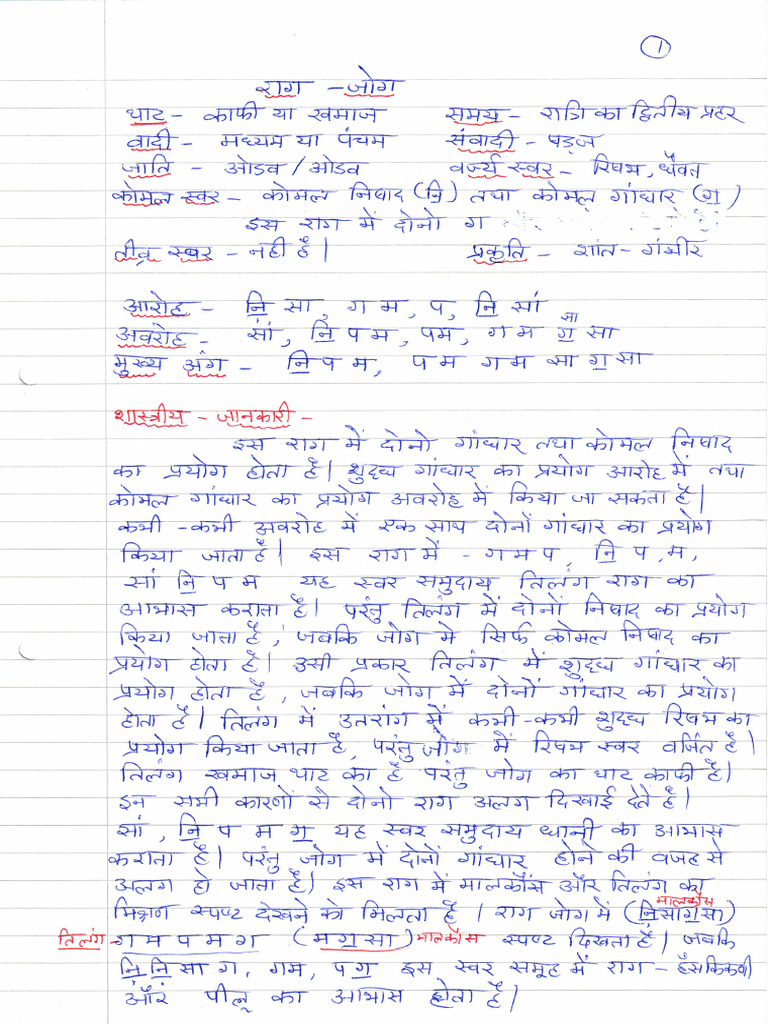 1
राग - जोग
थाट - काफी या खमाज समय - रात्रि का द्वितीय प्रहर
वादी - मध्यम या पंचम संवादी - षड्ज
जाति - ओडव / ओडव वर्ज्य स्वर - रिषभ, धैवत
कोमल स्वर - कोमल निषाद (नि॒) तथा कोमल गांधार (ग॒)
इस राग में दोनो ग
तीव्र स्वर - नही है। प्रकृति - शांत - गंभीर
आरोह - नि॒ सा, ग म, प, नि॒ सां
सा
अवरोह - सां, नि॒ प म, पम, ग म ग॒ सा
मुख्य अंग - नि॒ प म, प म ग म सा ग॒ सा
शास्त्रीय - जानकारी -
इस राग में दोनो गांधार तथा कोमल निषाद
का प्रयोग होता है। शुद्ध गांधार का प्रयोग आरोह में तथा
कोमल गांधार का प्रयोग अवरोह में किया जा सकता है।
कभी - कभी अवरोह में एक साथ दोनों गांधार का प्रयोग
किया जाता है। इस राग में - ग म प, नि॒ प, म,
सां नि॒ प म यह स्वर समुदाय तिलंग राग का
आभास कराता है। परंतु तिलंग में दोनों निषाद का प्रयोग
किया जाता है, जबकि जोग मे सिर्फ कोमल निषाद का
प्रयोग होता है। उसी प्रकार तिलंग में शुद्ध गांधार का
प्रयोग होता है, जबकि जोग में दोनों गांधार का प्रयोग
होता है। तिलंग में उतरांग में कभी-कभी शुद्ध रिषभ का
प्रयोग किया जाता है, परंतु जोग में रिषभ स्वर वर्जित है।
तिलंग खमाज थाट का है परंतु जोग का थाट काफी है।
इन सभी कारणों से दोनो राग अलग दिखाई देतें है।
सां, नि॒ प म ग॒ यह स्वर समुदाय धानी का आभास
कराता है। परंतु जोग में दोनों गांधार होने की वजह से
अलग हो जाता है। इस राग में मालकौंस और तिलंग का
मालकौंस
मिश्रण स्पष्ट देखने को मिलता है। राग जोग में (नि॒साग॒सा)
तिलंग - ग म प म ग (म ग॒ सा) मालकौंस स्पष्ट दिखता है। जबकि
नि॒ नि॒ सा ग, गम, प ग॒ इस स्वर समूह में राग - हंसकिंकणी
और पीलू का आभास होता है।